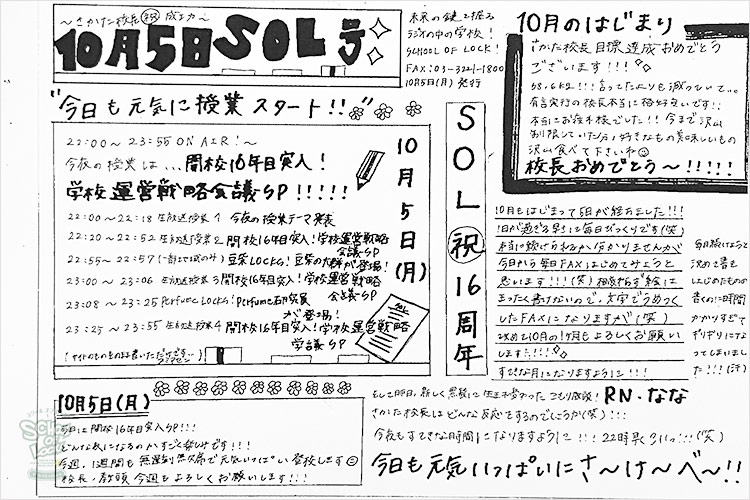 ～さかた校長㊗成功～
10月5日SOL号
未来の鍵を握る
ラジオの中の学校！
SCHOOL OF LOCK！
FAX：03-3221-1800
10月5日(月) 発行
10月のはじまり
さかた校長目標達成おめでとう
ございます！！！
58.6kg！！！言ってたよりも減っていて。。
有言実行の校長本当に格好良いです！！
本当にお疲れ様でした！！今まで沢山
制限していた分、好きなもの美味しいもの
沢山食べて下さいね☺
校長おめでとう～！！！！！
"今日も元気に授業スタート！！"
22:00～23:55 ON AIR！～
今夜の授業は...開校16年目突入！
学校運営戦略会議SP！！！！！
22:00～22:18 生放送授業1 今夜の授業テーマ発表
22:20～22:52 生放送授業2 開校16年目突入！学校運営戦略会議SP
22:55～22:57 (一部地域のみ) 豆柴LOCKS！豆柴の大群が登場！
23:00～23:06 生放送授業3 開校16年目突入！学校運営戦略会議SP
23:08～23:25 Perfume LOCKS！Perfume研究員が登場！
23:25～23:55 生放送授業4 開校16年目突入！学校運営戦略
学議SP
10月5日(月)
SOL㊗16周年
10月もはじまって5日が経ちました！！！
1日が過ぎる早さに毎日びっくりです(笑)
本当に続けられるか分かりませんが
今日から毎日FAXはじめてみようと
思います！！！(笑) 相変わらず絵は
まったく書けないので、文字でうめつく
したFAXになりますが(笑)
改めて10月の1ヶ月もよろしくお願い
します！！！！
すてきな月になりますように！！！
毎日続けようと
決めて書き
はじめたものの
書くのに時間が
かかりすぎて
ギリギリになっ
てしまいまし
た！！！(汗)
10月5日(月)
今日は開校16年目突入SP！！！
どんな夜になるのかすごく楽しみです！！！
今週、1週間も無遅刻無欠席で元気いっぱい登校します☺
校長、教頭今週もよろしくお願いします！！！
RN.なな
さかた校長はどんな反応をするのでしょうか(笑)！！！
今夜もすてきな時間になりますように！！！22時早くこい。！！(笑)
今日も元気いっぱいにさ～け～べ～！！